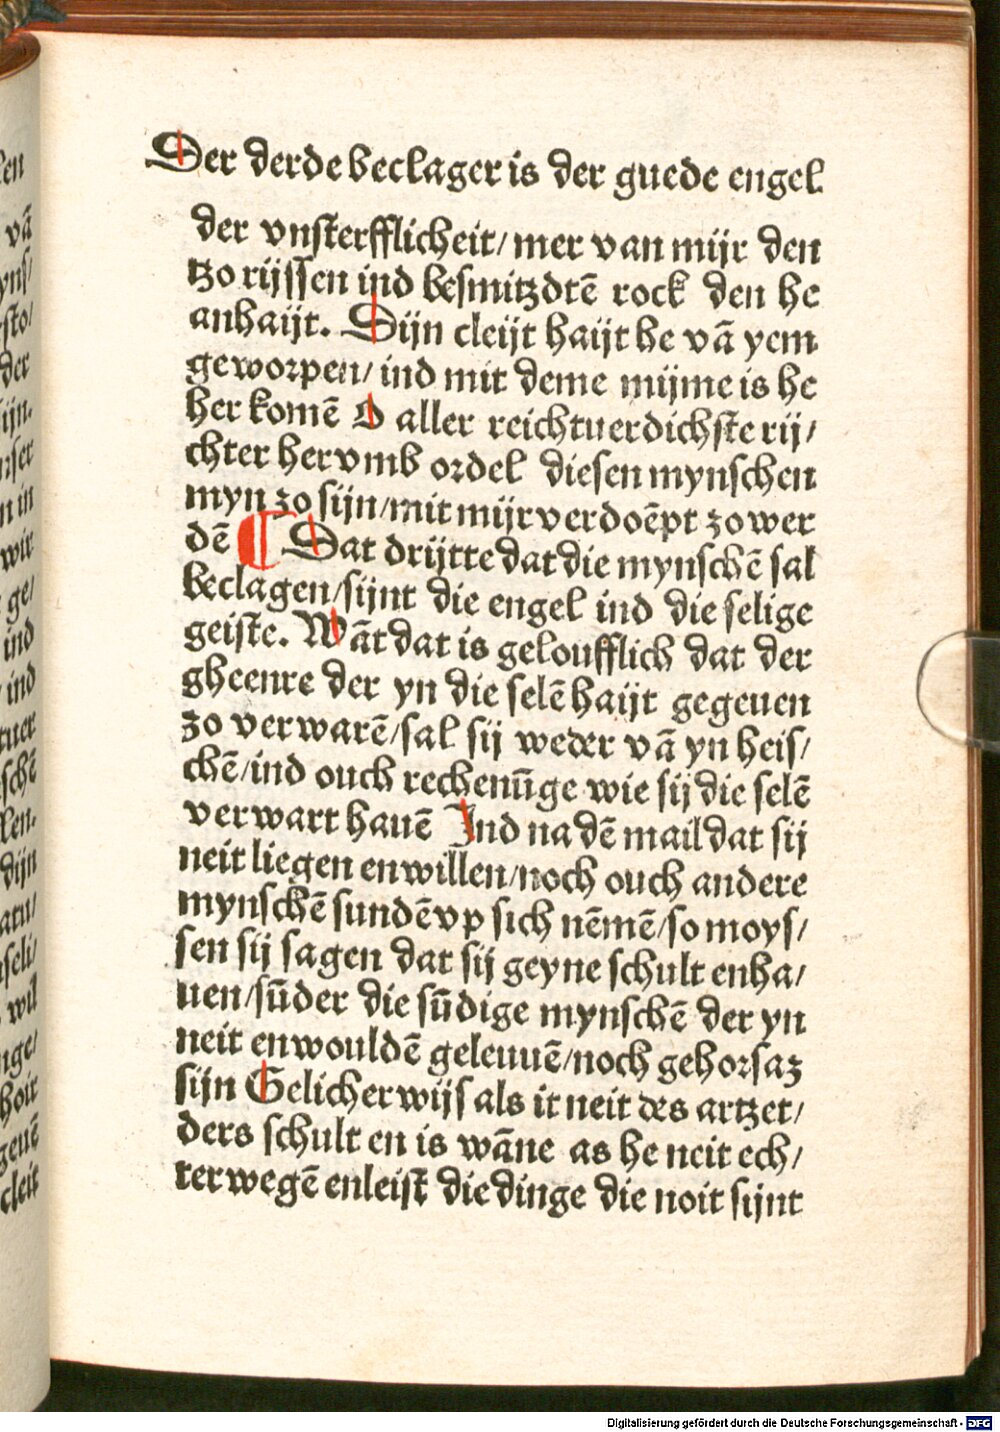 Der derde beclager is der guede engel.
der vnsterfflicheit/ mer van mijr den
tzo rijssen ind besmitzdtē rock den he
anhaijt. Dijn cleijt haijt he vā yem
geworpen/ ind mit deme mijme is he
her komē O aller reichtuerdichste rij/
chter her vmb ordel diesen mynschen
myn zo sijn/mit mijr verdoēpt zo wer
dē ¶ Dat drijtte dat die mynschē sal
beclagen/sijnt die engel ind die selige
geiste. Wāt dat is geloufflich dat der
gheenre der yn die selē haijt gegeuen
zo verwarē/sal sij weder vā yn heis/
chē/ind ouch rechenūge wie sij die selē
verwart hauē Ind na dē mail dat sij
neit liegen enwillen/noch ouch andere
mynschē sundē vp sich nēmē/so moys/
sen sij sagen dat sij geyne schult enha/
uen/sūder die sūdige mynschē der yn
neit enwouldē geleuuē/noch gehorsaz
sijn Gelicher wijs als it neit des artzet/
ders schult en is wāne as he neit ech/
ter wegē enleist die dinge die noit sijnt
Digitalisierung gefördert durch die Deutsche Forschungsgemeinschaft - DFG